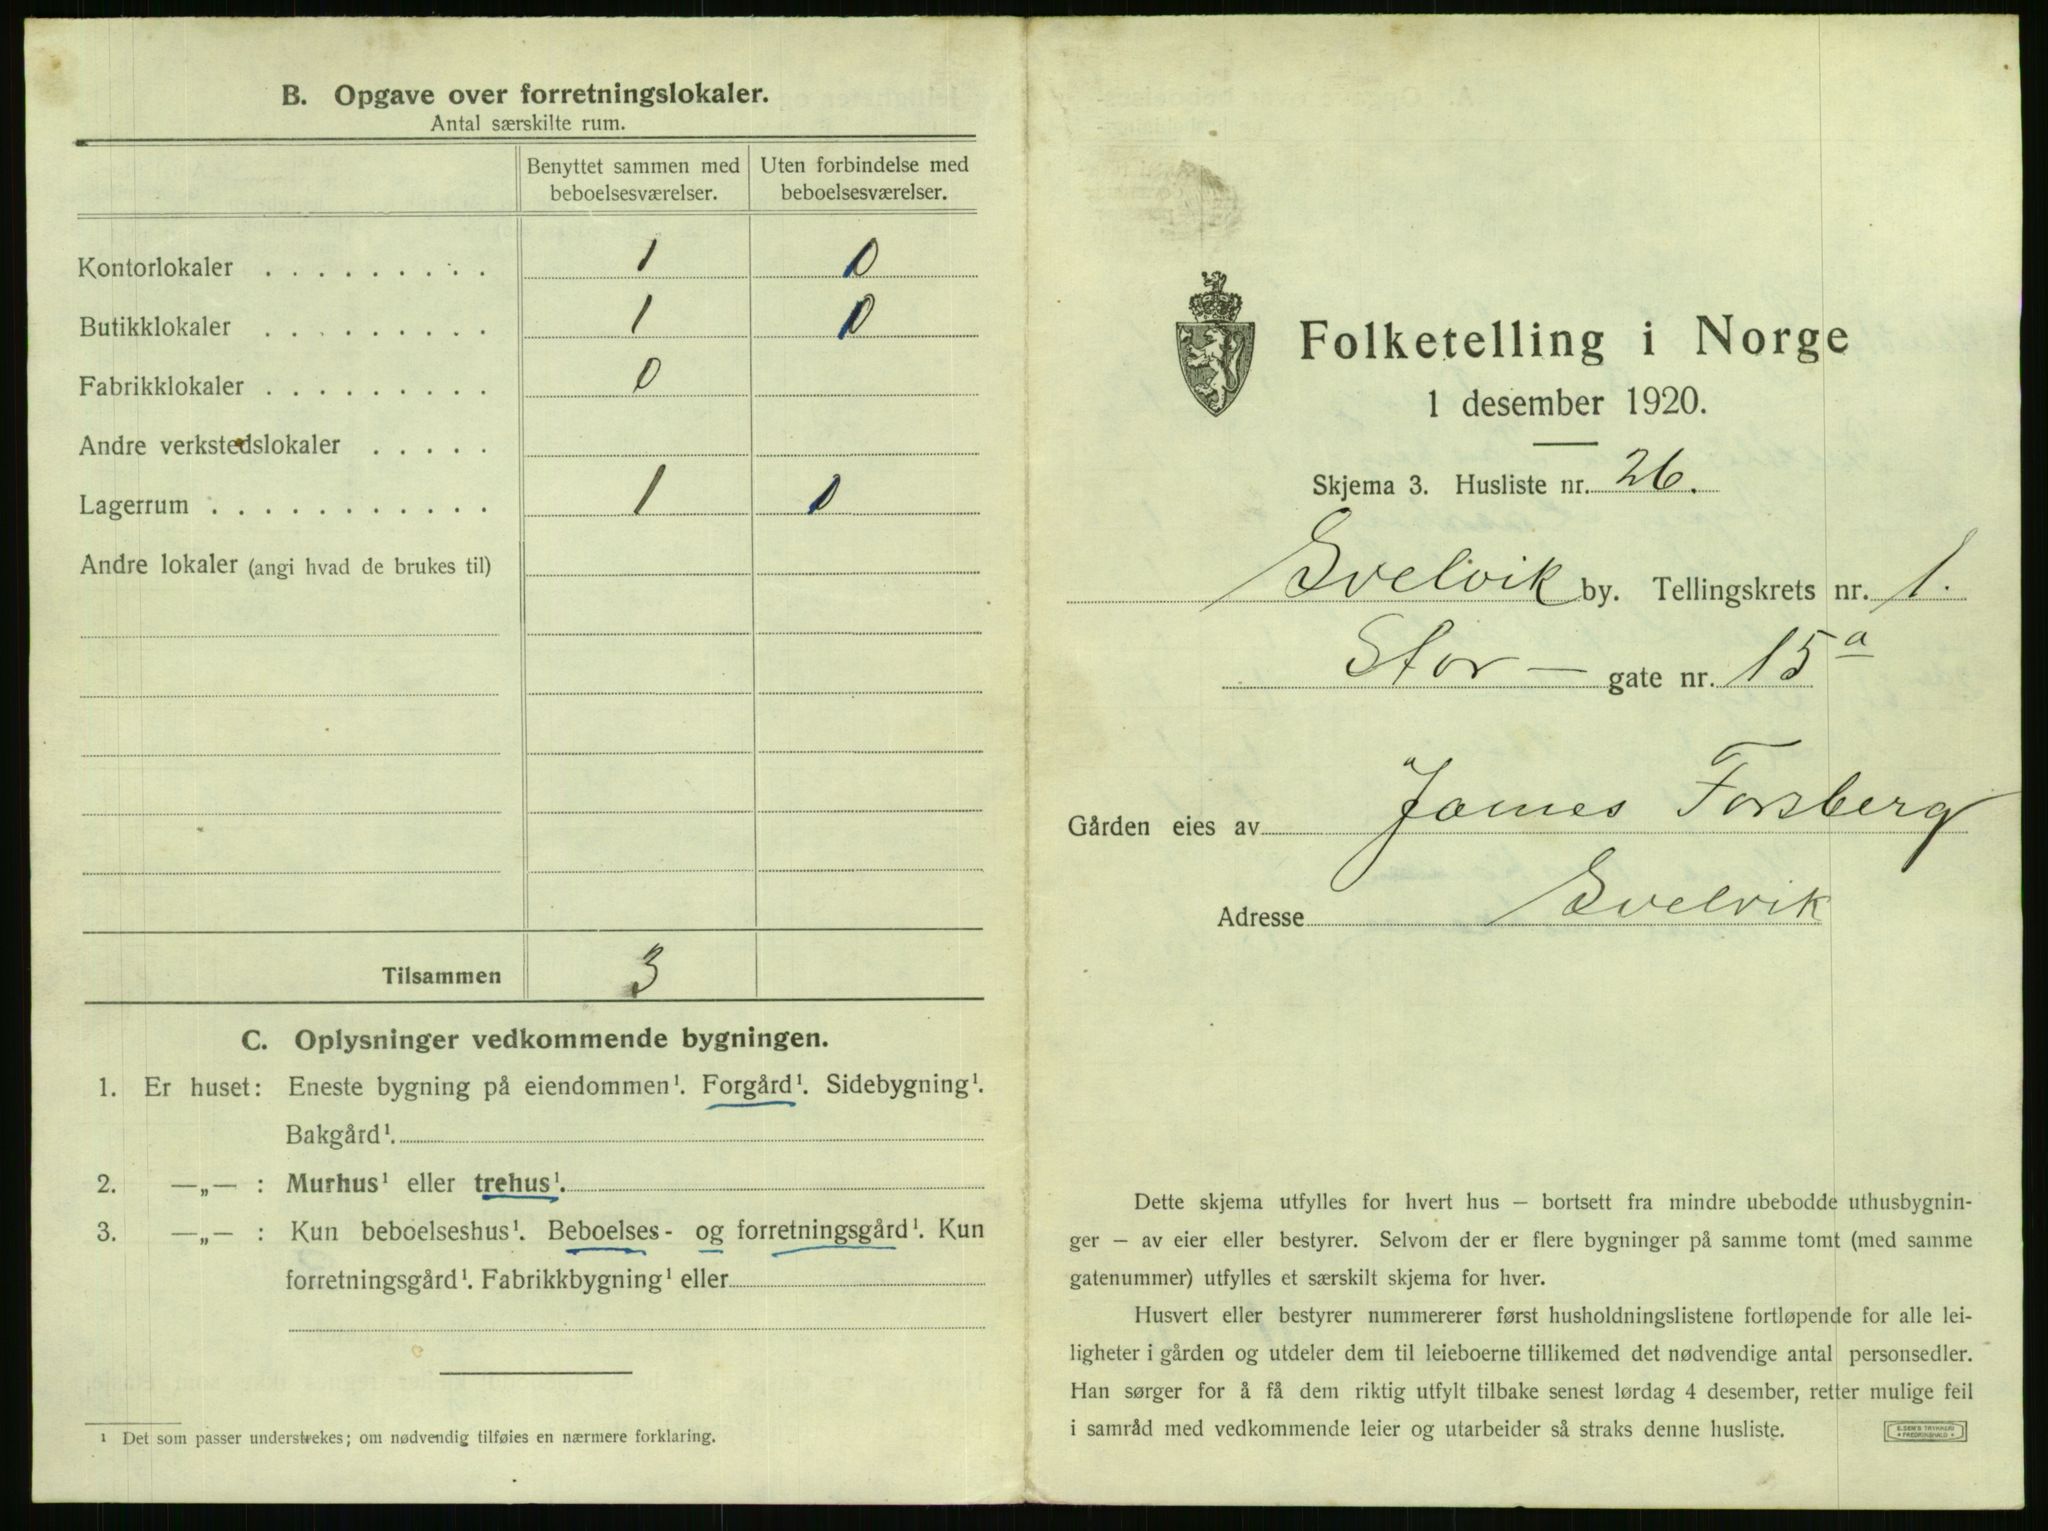 B. Opgave over forretningslokaler.
Antal særskilte rum.
Benyttet sammen med beboelsesværelser. Uten forbindelse med beboelsesværelser.
Kontorlokaler . . . . . . . . . 1 0
Butikklokaler . . . . . . . . . 1 0
Fabrikklokaler . . . . . . . . . 0
Andre verkstedslokaler . . . . .
Lagerrum . . . . . . . . . . . 1 0
Andre lokaler (angi hvad de brukes til)
Tilsammen 3
C. Oplysninger vedkommende bygningen.
1. Er huset: Eneste bygning på eiendommen¹. Forgård¹. Sidebygning¹.
Bakgård¹.
2. —„— : Murhus¹ eller trehus¹.
3. —„— : Kun beboelseshus¹. Beboelses- og forretningsgård¹. Kun
forretningsgård¹. Fabrikkbygning¹ eller
¹ Det som passer understrekes; om nødvendig tilføies en nærmere forklaring.
Folketelling i Norge
1 desember 1920.
Skjema 3. Husliste nr. 26.
Svelvik by. Tellingskrets nr. 1.
Stor — gate nr. 15 a
Gården eies av James Forsberg
Adresse Svelvik
Dette skjema utfylles for hvert hus — bortsett fra mindre ubebodde uthusbygnin-
ger — av eier eller bestyrer. Selvom der er flere bygninger på samme tomt (med samme
gatenummer) utfylles et særskilt skjema for hver.
Husvert eller bestyrer nummererer først husholdningslistene fortløpende for alle lei-
ligheter i gården og utdeler dem til leieboerne tillikemed det nødvendige antal personsedler.
Han sørger for å få dem riktig utfylt tilbake senest lørdag 4 desember, retter mulige feil
i samråd med vedkommende leier og utarbeider så straks denne husliste.